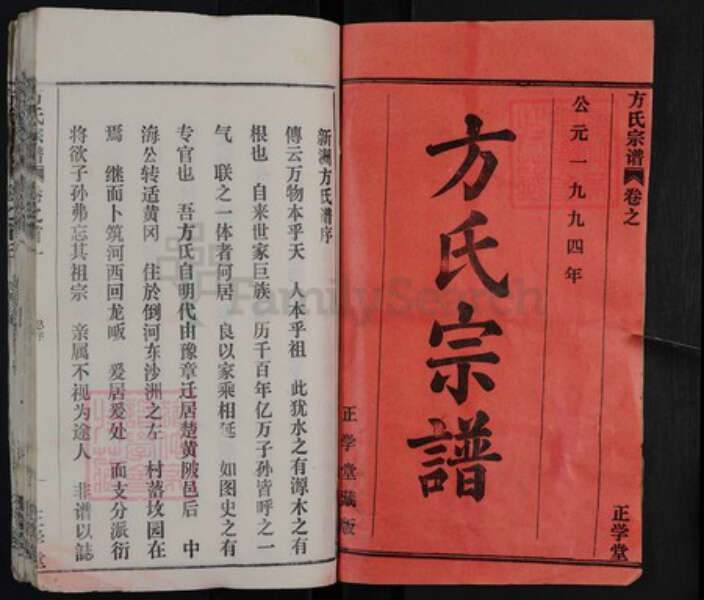 方氏宗谱 卷之
正学堂
公元一九九四年
方氏宗譜
正学堂藏版
新洲方氏谱序
傳云万物本乎天 人本乎祖 此犹水之有源木之有
根也 自来世家巨族 历千百年亿万子孙皆呼之一
气 联之一体者何居 良以家乘相延 如图史之有
专官也 吾方氏自明代由豫章迁居楚黄陂邑后 中
海公转适黄冈 住於倒河东沙洲之左 村落坟园在
焉 继而卜筑河西回龙畈 爰居爰处 面支分派衍
将欲子孙弗忘其祖宗 亲属不视为途人 非谱以誌
方氏宗谱
正学堂
FamilySearch